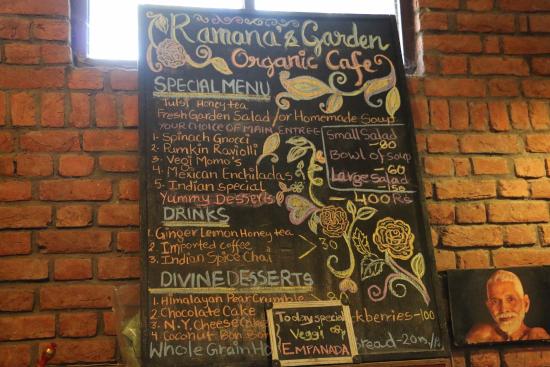 Ramana's Garden
Organic Cafe
SPECIAL MENU
Tulsi Honey tea
Fresh Garden Salad/or Homemade Soup
YOUR CHOICE OF MAIN ENTREE
1. Spinach Gnocci
2. Pumkin Raviolli
3. Vegi Momo's
4. Mexican Enchiladas
5. Indian special
Yummy Desserts
400 Rs
Small Salad
-80
Bowl of Soup
-60
Large Salad
-150
DRINKS
1. Ginger Lemon Honey tea
2. Imported coffee
3. Indian Spice Chai
> 30
DIVINE DESSERTS
1. Himalayan Pear Crumble
2. Chocolate Cake
3. N.Y. Cheese Cake
4. Coconut Bon Bon
ckberries-100
Whole Grain Ho
Bread-20
Today special
Veggi
EMPANADA